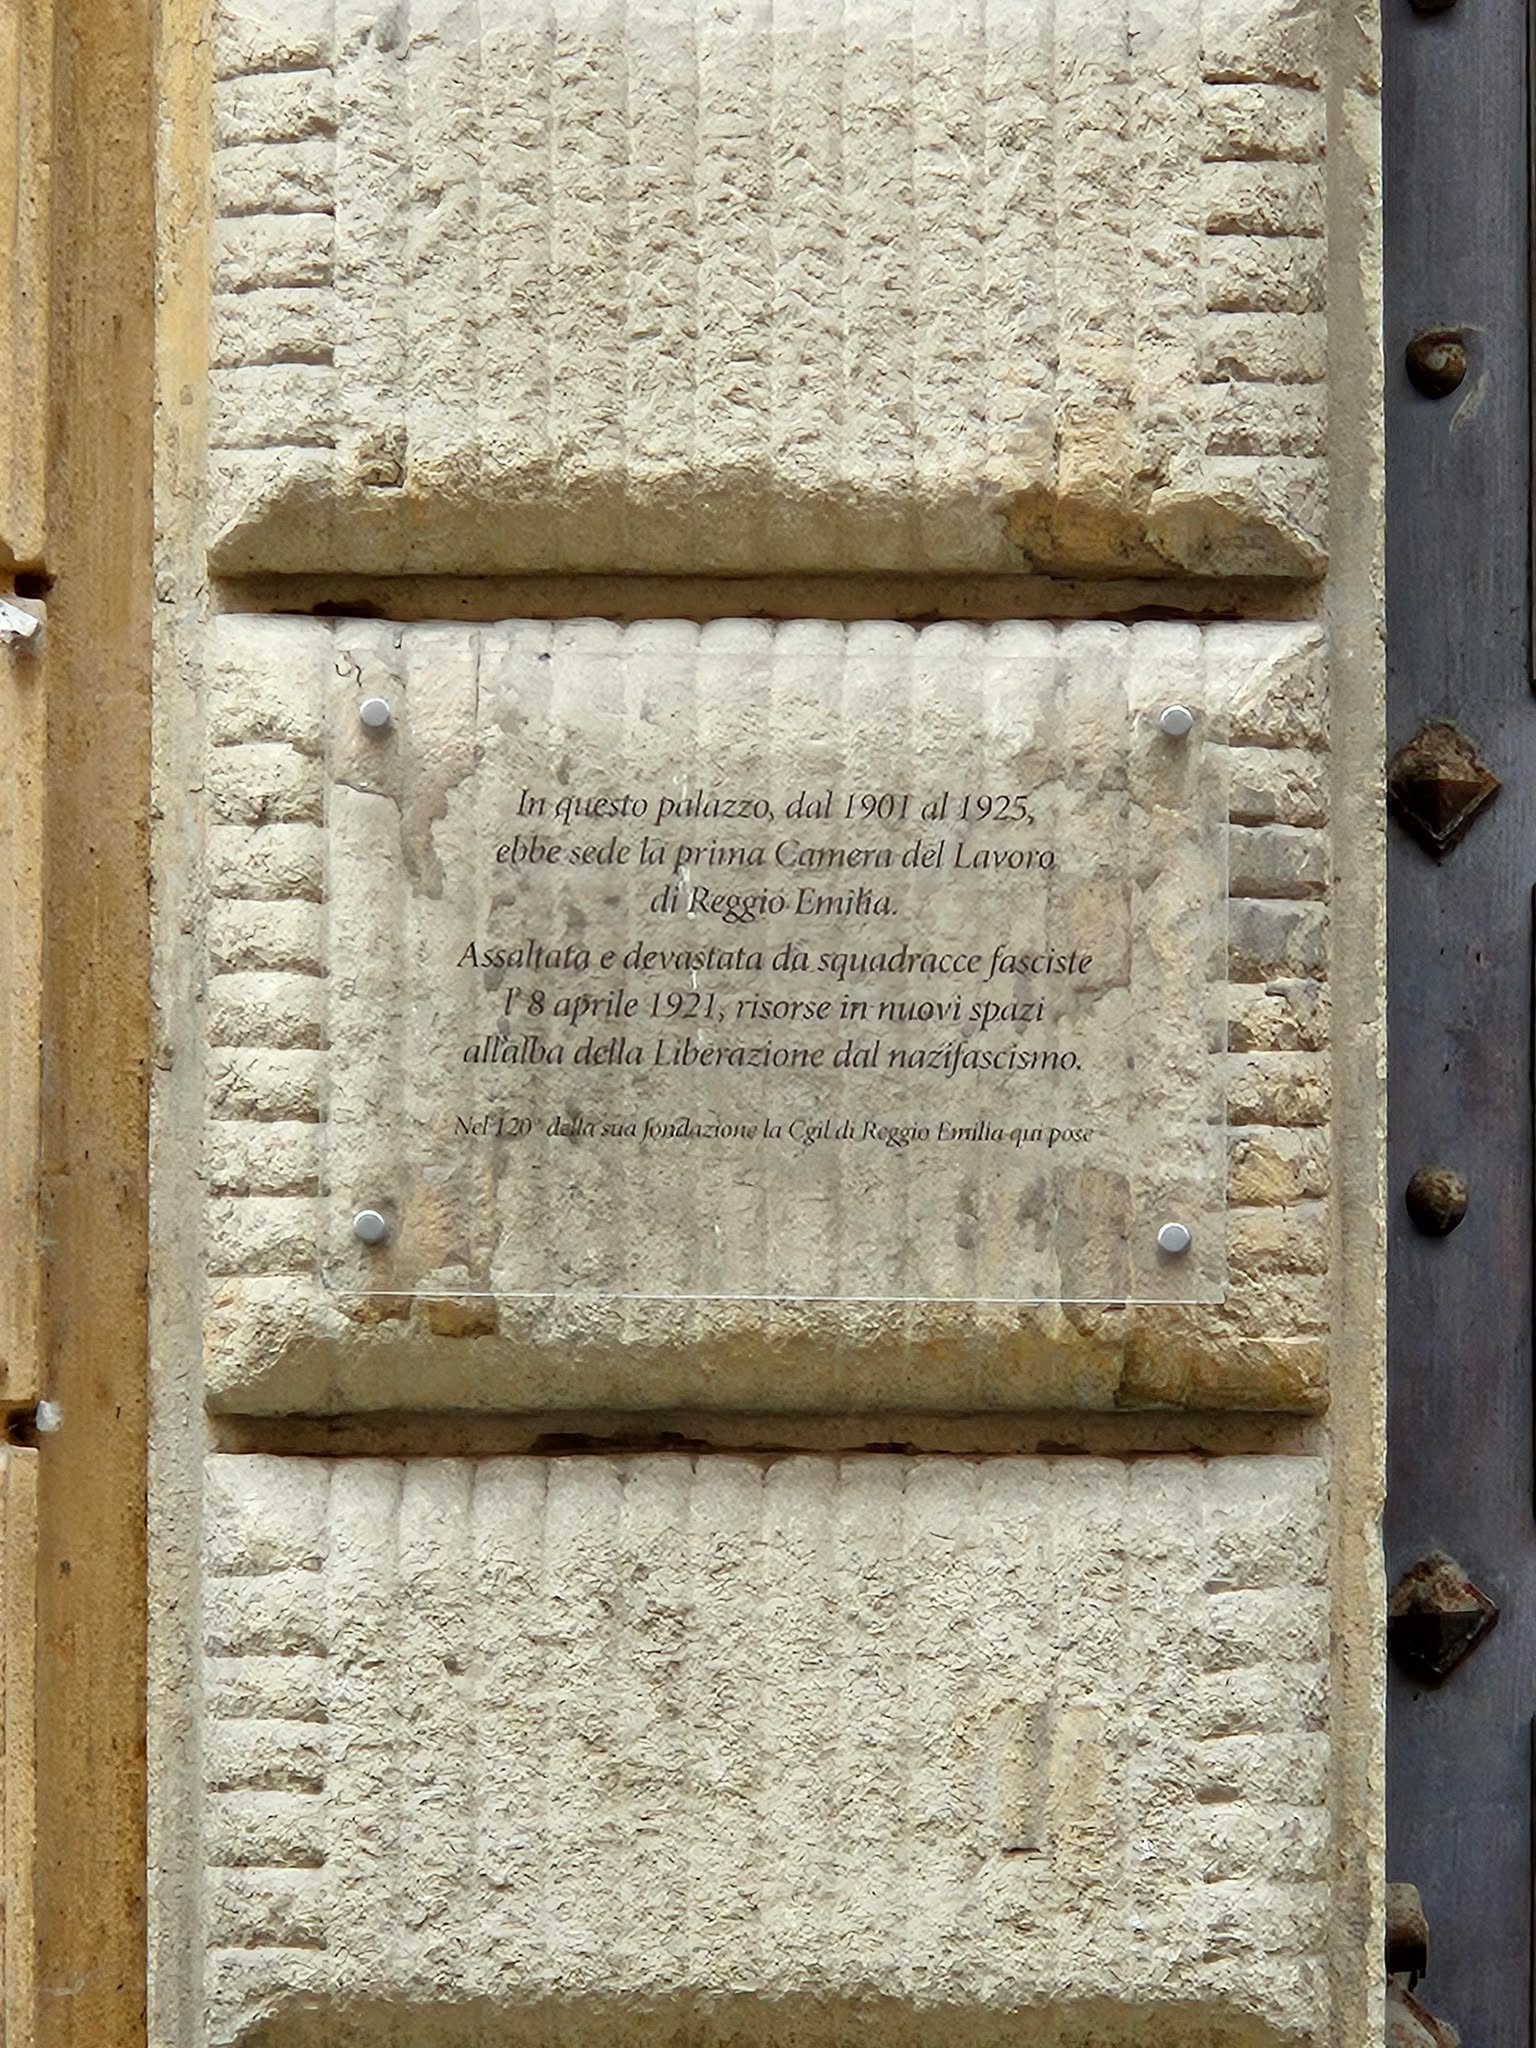 In questo palazzo, dal 1901 al 1925,
ebbe sede la prima Camera del Lavoro
di Reggio Emilia.
Assaltata e devastata da squadracce fasciste
l' 8 aprile 1921, risorse in nuovi spazi
all'alba della Liberazione dal nazifascismo.
Nel 120° della sua fondazione la Cgil di Reggio Emilia qui pose